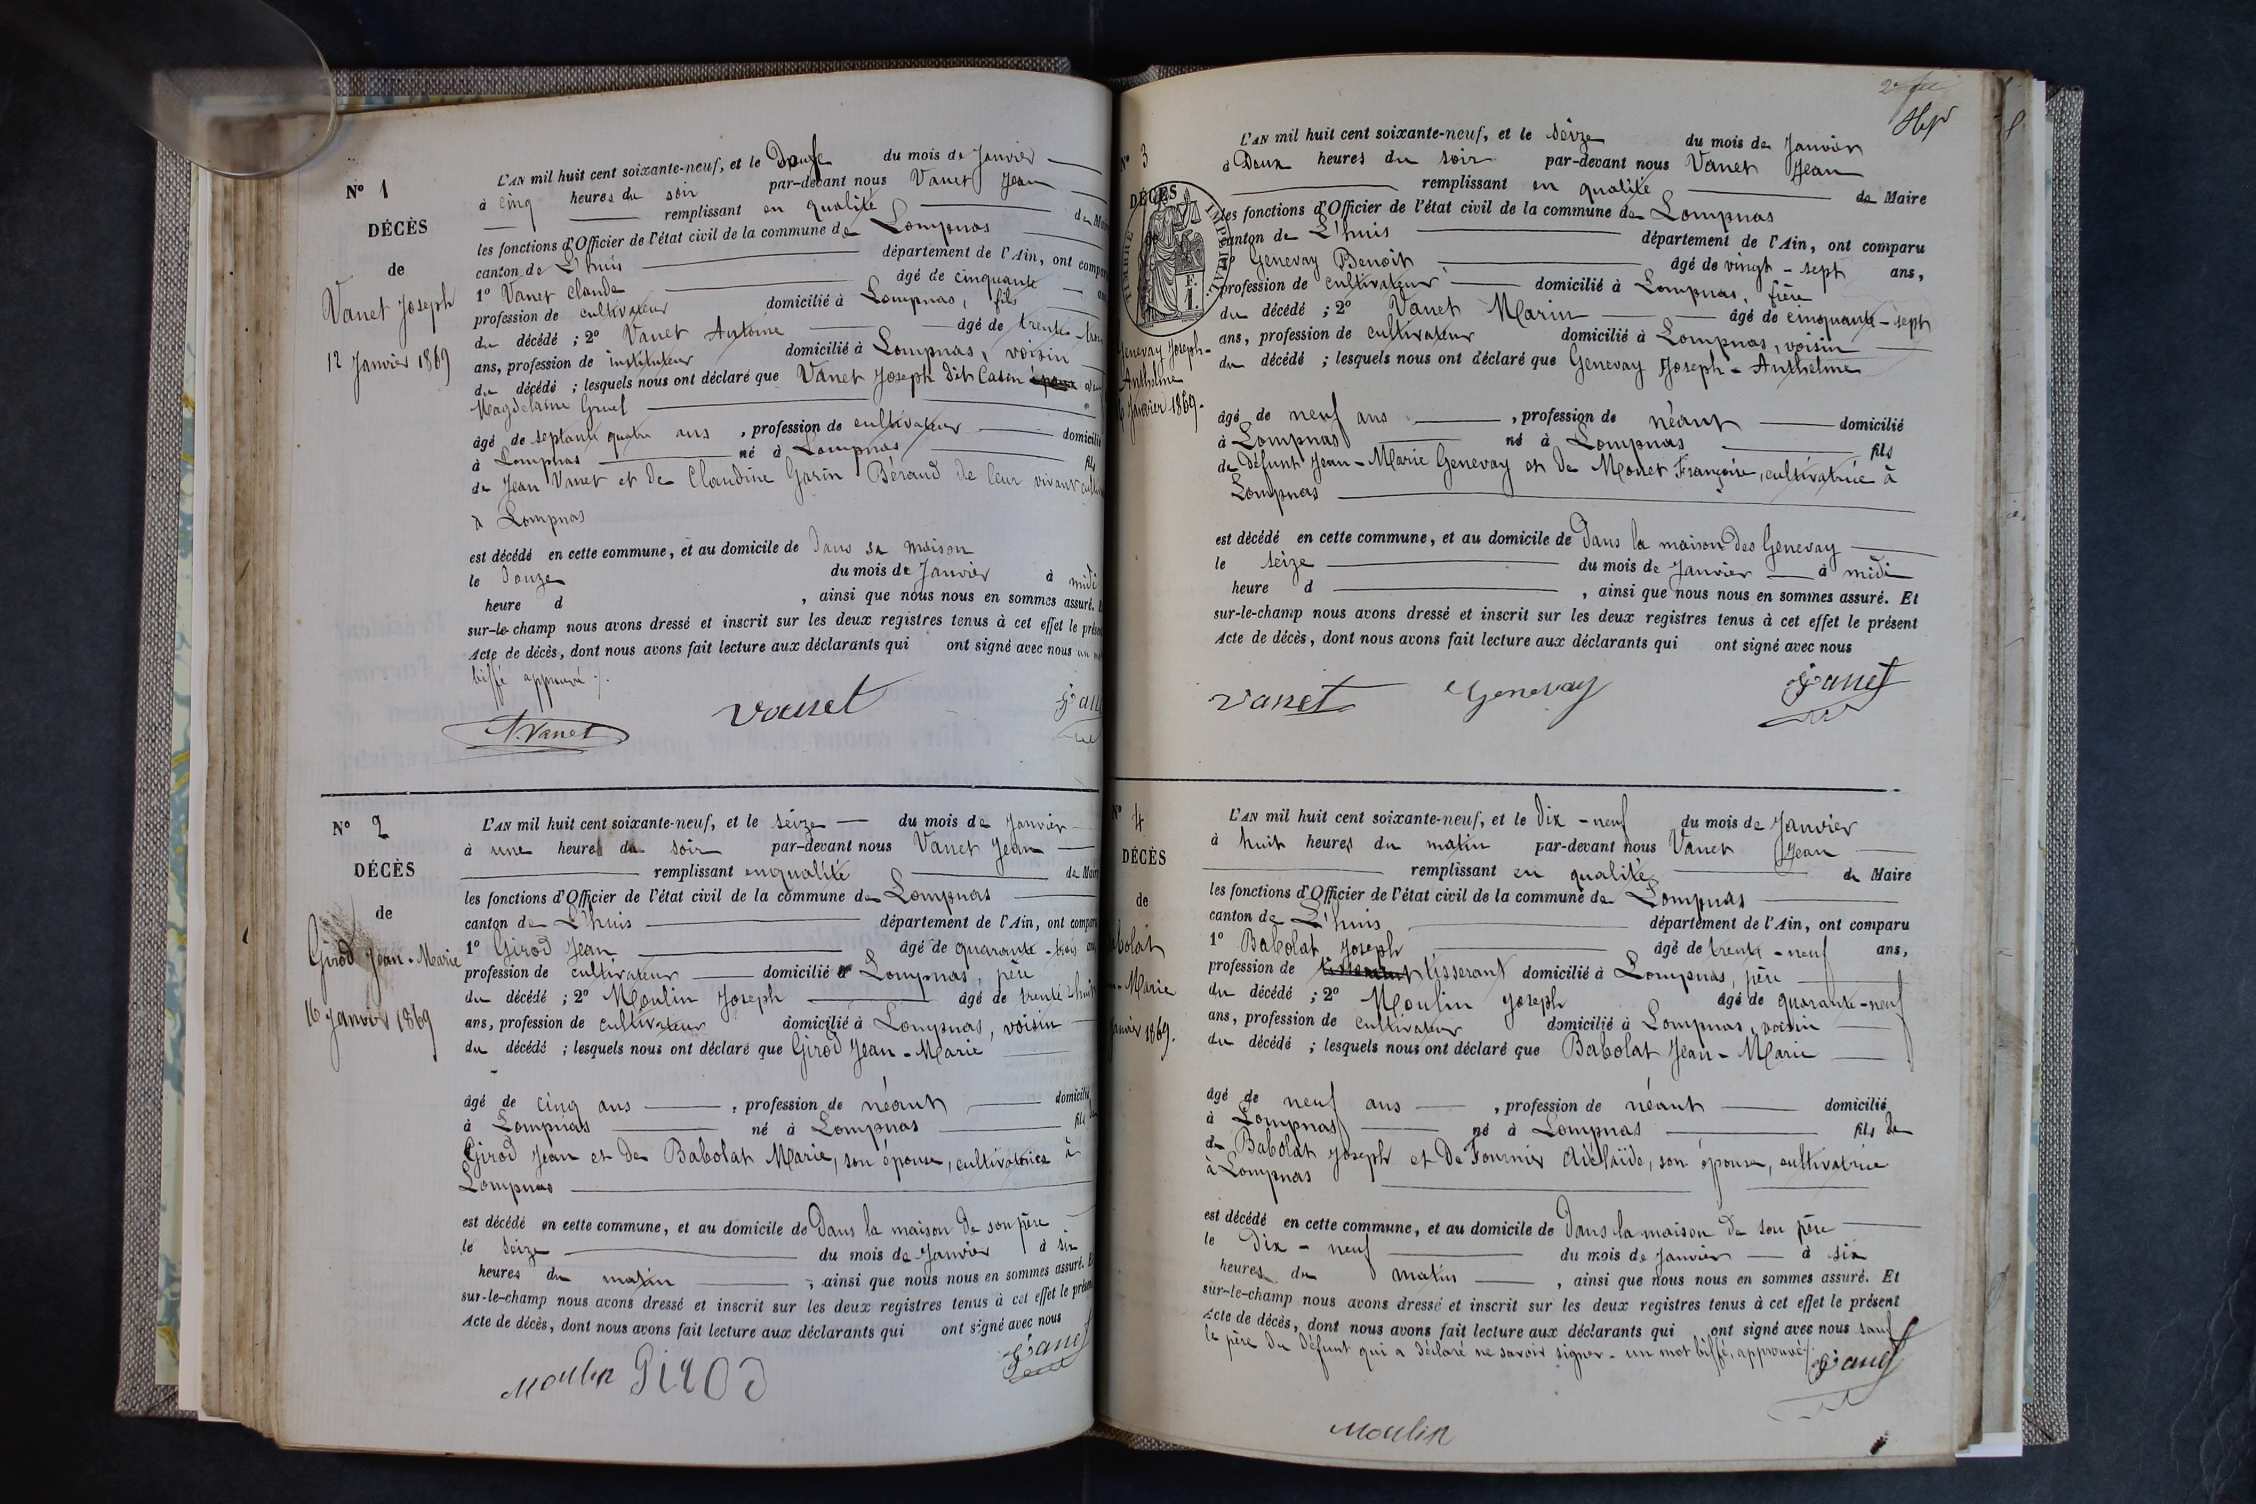 N° 1
DÉCÈS
de
Vanet Joseph
12 Janvier 1869
L'AN mil huit cent soixante-neuf, et le Douze du mois de Janvier
à cinq heures du soir par-devant nous Vanet Jean
remplissant en qualité de
les fonctions d'Officier de l'état civil de la commune de Lompnas
canton de L'huis département de l'Ain, ont
1° Vanet Claude âgé de cinquante
profession de cultivateur domicilié à Lompnas, fils
du décédé ; 2° Vanet Antoine âgé de trente
ans, profession de instituteur domicilié à Lompnas, voisin
du décédé ; lesquels nous ont déclaré que Vanet Joseph dit Catin époux
Magdelaine Gruel
âgé de septante quatre ans , profession de cultivateur domicilié
à Lompnas né à Lompnas fils
de Jean Vanet et de Claudine Garin Béraud de leur vivant
à Lompnas
est décédé en cette commune, et au domicile de Dans sa maison
le Douze du mois de Janvier à midi
heure d , ainsi que nous nous en sommes assuré.
sur-le-champ nous avons dressé et inscrit sur les deux registres tenus à cet effet le
Acte de décès, dont nous avons fait lecture aux déclarants qui ont signé avec nous un
biffé approuvé
A. Vanet Vanet
N° 2
DÉCÈS
de
Girod Jean-Marie
16 Janvier 1869
L'AN mil huit cent soixante-neuf, et le seize du mois de Janvier
à une heure du soir par-devant nous Vanet Jean
remplissant en qualité de
les fonctions d'Officier de l'état civil de la commune de Lompnas
canton de L'huis département de l'Ain, ont
1° Girod Jean âgé de quarante-trois
profession de cultivateur domicilié à Lompnas, père
du décédé ; 2° Moulin Joseph âgé de trente-huit
ans, profession de cultivateur domicilié à Lompnas, voisin
du décédé ; lesquels nous ont déclaré que Girod Jean-Marie
âgé de cinq ans , profession de néant domicilié
à Lompnas né à Lompnas fils de
Girod Jean et de Babolat Marie, son épouse, cultivatrice à
Lompnas
est décédé en cette commune, et au domicile de Dans la maison de son père
le seize du mois de Janvier à six
heures du matin , ainsi que nous nous en sommes assuré.
sur-le-champ nous avons dressé et inscrit sur les deux registres tenus à cet effet le
Acte de décès, dont nous avons fait lecture aux déclarants qui ont signé avec nous
Moulin Girod Vanet
N° 3
DÉCÈS
TIMBRE IMPÉRIAL
Genevay Joseph-
Anthelme
Janvier 1869.
L'AN mil huit cent soixante-neuf, et le seize du mois de Janvier
à Deux heures du soir par-devant nous Vanet Jean
remplissant en qualité de Maire
les fonctions d'Officier de l'état civil de la commune de Lompnas
canton de L'huis département de l'Ain, ont comparu
1° Genevay Benoît âgé de vingt-sept ans,
profession de cultivateur domicilié à Lompnas, frère
du décédé ; 2° Vanet Marin âgé de cinquante-sept
ans, profession de cultivateur domicilié à Lompnas, voisin
du décédé ; lesquels nous ont déclaré que Genevay Joseph-Anthelme
âgé de neuf ans , profession de néant domicilié
à Lompnas né à Lompnas fils
de Défunt Jean-Marie Genevay et de Monet Françoise, cultivatrice à
Lompnas
est décédé en cette commune, et au domicile de Dans la maison des Genevay
le seize du mois de Janvier à midi
heure d , ainsi que nous nous en sommes assuré. Et
sur-le-champ nous avons dressé et inscrit sur les deux registres tenus à cet effet le présent
Acte de décès, dont nous avons fait lecture aux déclarants qui ont signé avec nous
Vanet Genevay Vanet
N° 4
DÉCÈS
de
L'AN mil huit cent soixante-neuf, et le Dix-neuf du mois de Janvier
à huit heures du matin par-devant nous Vanet Jean
remplissant en qualité de Maire
les fonctions d'Officier de l'état civil de la commune de Lompnas
canton de L'huis département de l'Ain, ont comparu
1° Babolat Joseph âgé de trente-neuf ans,
profession de tisserant domicilié à Lompnas, père
du décédé ; 2° Moulin Joseph âgé de quarante-neuf
ans, profession de cultivateur domicilié à Lompnas, voisin
du décédé ; lesquels nous ont déclaré que Babolat Jean-Marie
âgé de neuf ans , profession de néant domicilié
à Lompnas né à Lompnas fils de
de Babolat Joseph et de Fournier Adélaïde, son épouse, cultivatrice
à Lompnas
est décédé en cette commune, et au domicile de Dans la maison de son père
le Dix-neuf du mois de Janvier à six
heures du matin , ainsi que nous nous en sommes assuré. Et
sur-le-champ nous avons dressé et inscrit sur les deux registres tenus à cet effet le présent
Acte de décès, dont nous avons fait lecture aux déclarants qui ont signé avec nous sauf
le père du défunt qui a déclaré ne savoir signer - un mot biffé, approuvé
Vanet
Moulin